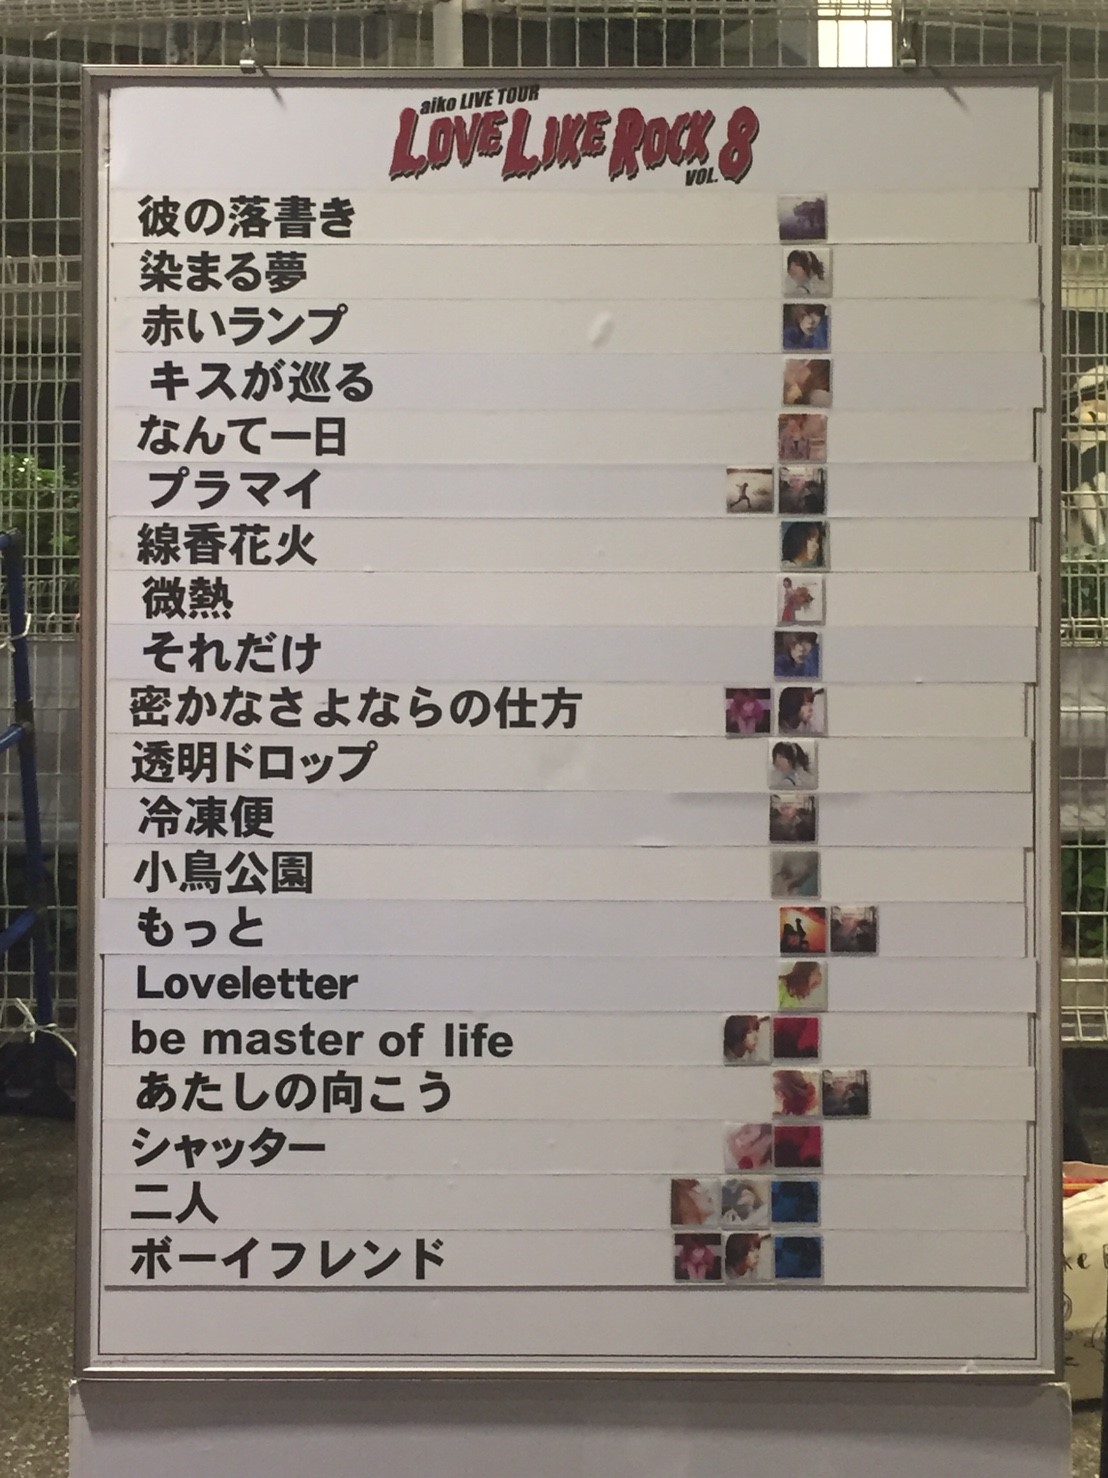 aiko LIVE TOUR
LOVE LIKE ROCK 8
VOL.
彼の落書き
染まる夢
赤いランプ
キスが巡る
なんて一日
プラマイ
線香花火
微熱
それだけ
密かなさよならの仕方
透明ドロップ
冷凍便
小鳥公園
もっと
Loveletter
be master of life
あたしの向こう
シャッター
二人
ボーイフレンド